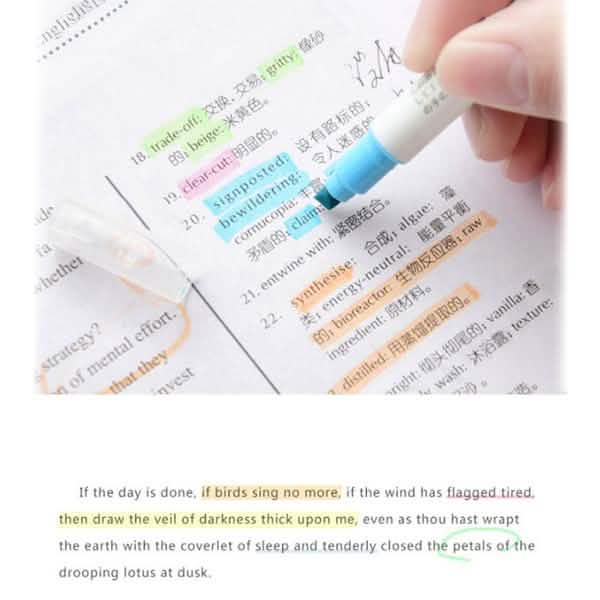 whether
strategy?
of mental effort.
that they
invest
18. trade-off: 交换, 交易; gritty: 像砂
的; beige: 米黄色。
19. clear-cut: 明显的。
20. signposted: 设有路标的;
bewildering: 令人迷惑的
cornucopia:
矛盾的; claim
21. entwine with: 紧密结合。
22. synthesise: 合成; algae: 藻
类; energy-neutral: 能量平衡
的; bioreactor: 生物反应器; raw
ingredient: 原材料。
distilled: 用蒸馏提取的。
彻头彻尾的; vanilla: 香
wash: 沐浴露; texture:
If the day is done, if birds sing no more, if the wind has flagged tired,
then draw the veil of darkness thick upon me, even as thou hast wrapt
the earth with the coverlet of sleep and tenderly closed the petals of the
drooping lotus at dusk.